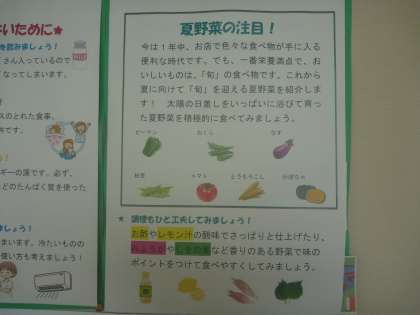 いために★
を飲みましょう！
さん入っているので
なってしまいます。
スのとれた食事、
ギーの源です。必ず、
どのたんぱく質を使った
ましょう！
まいます。冷たいものの
使い方も考えましょう！
夏野菜の注目！
今は１年中、お店で色々な食べ物が手に入る
便利な時代です。でも、一番栄養満点で、お
いしいものは、「旬」の食べ物です。これから
夏に向けて「旬」を迎える夏野菜を紹介しま
す！　太陽の日差しをいっぱいに浴びて育っ
た夏野菜を積極的に食べてみましょう。
ピーマン　おくら　なす
枝豆　トマト　とうもろこし　かぼちゃ
★ 調理もひと工夫してみましょう！
お酢やレモン汁の酸味でさっぱりと仕上げたり、
みょうがやしその葉など香りのある野菜で味の
ポイントをつけて食べやすくしてみましょう。